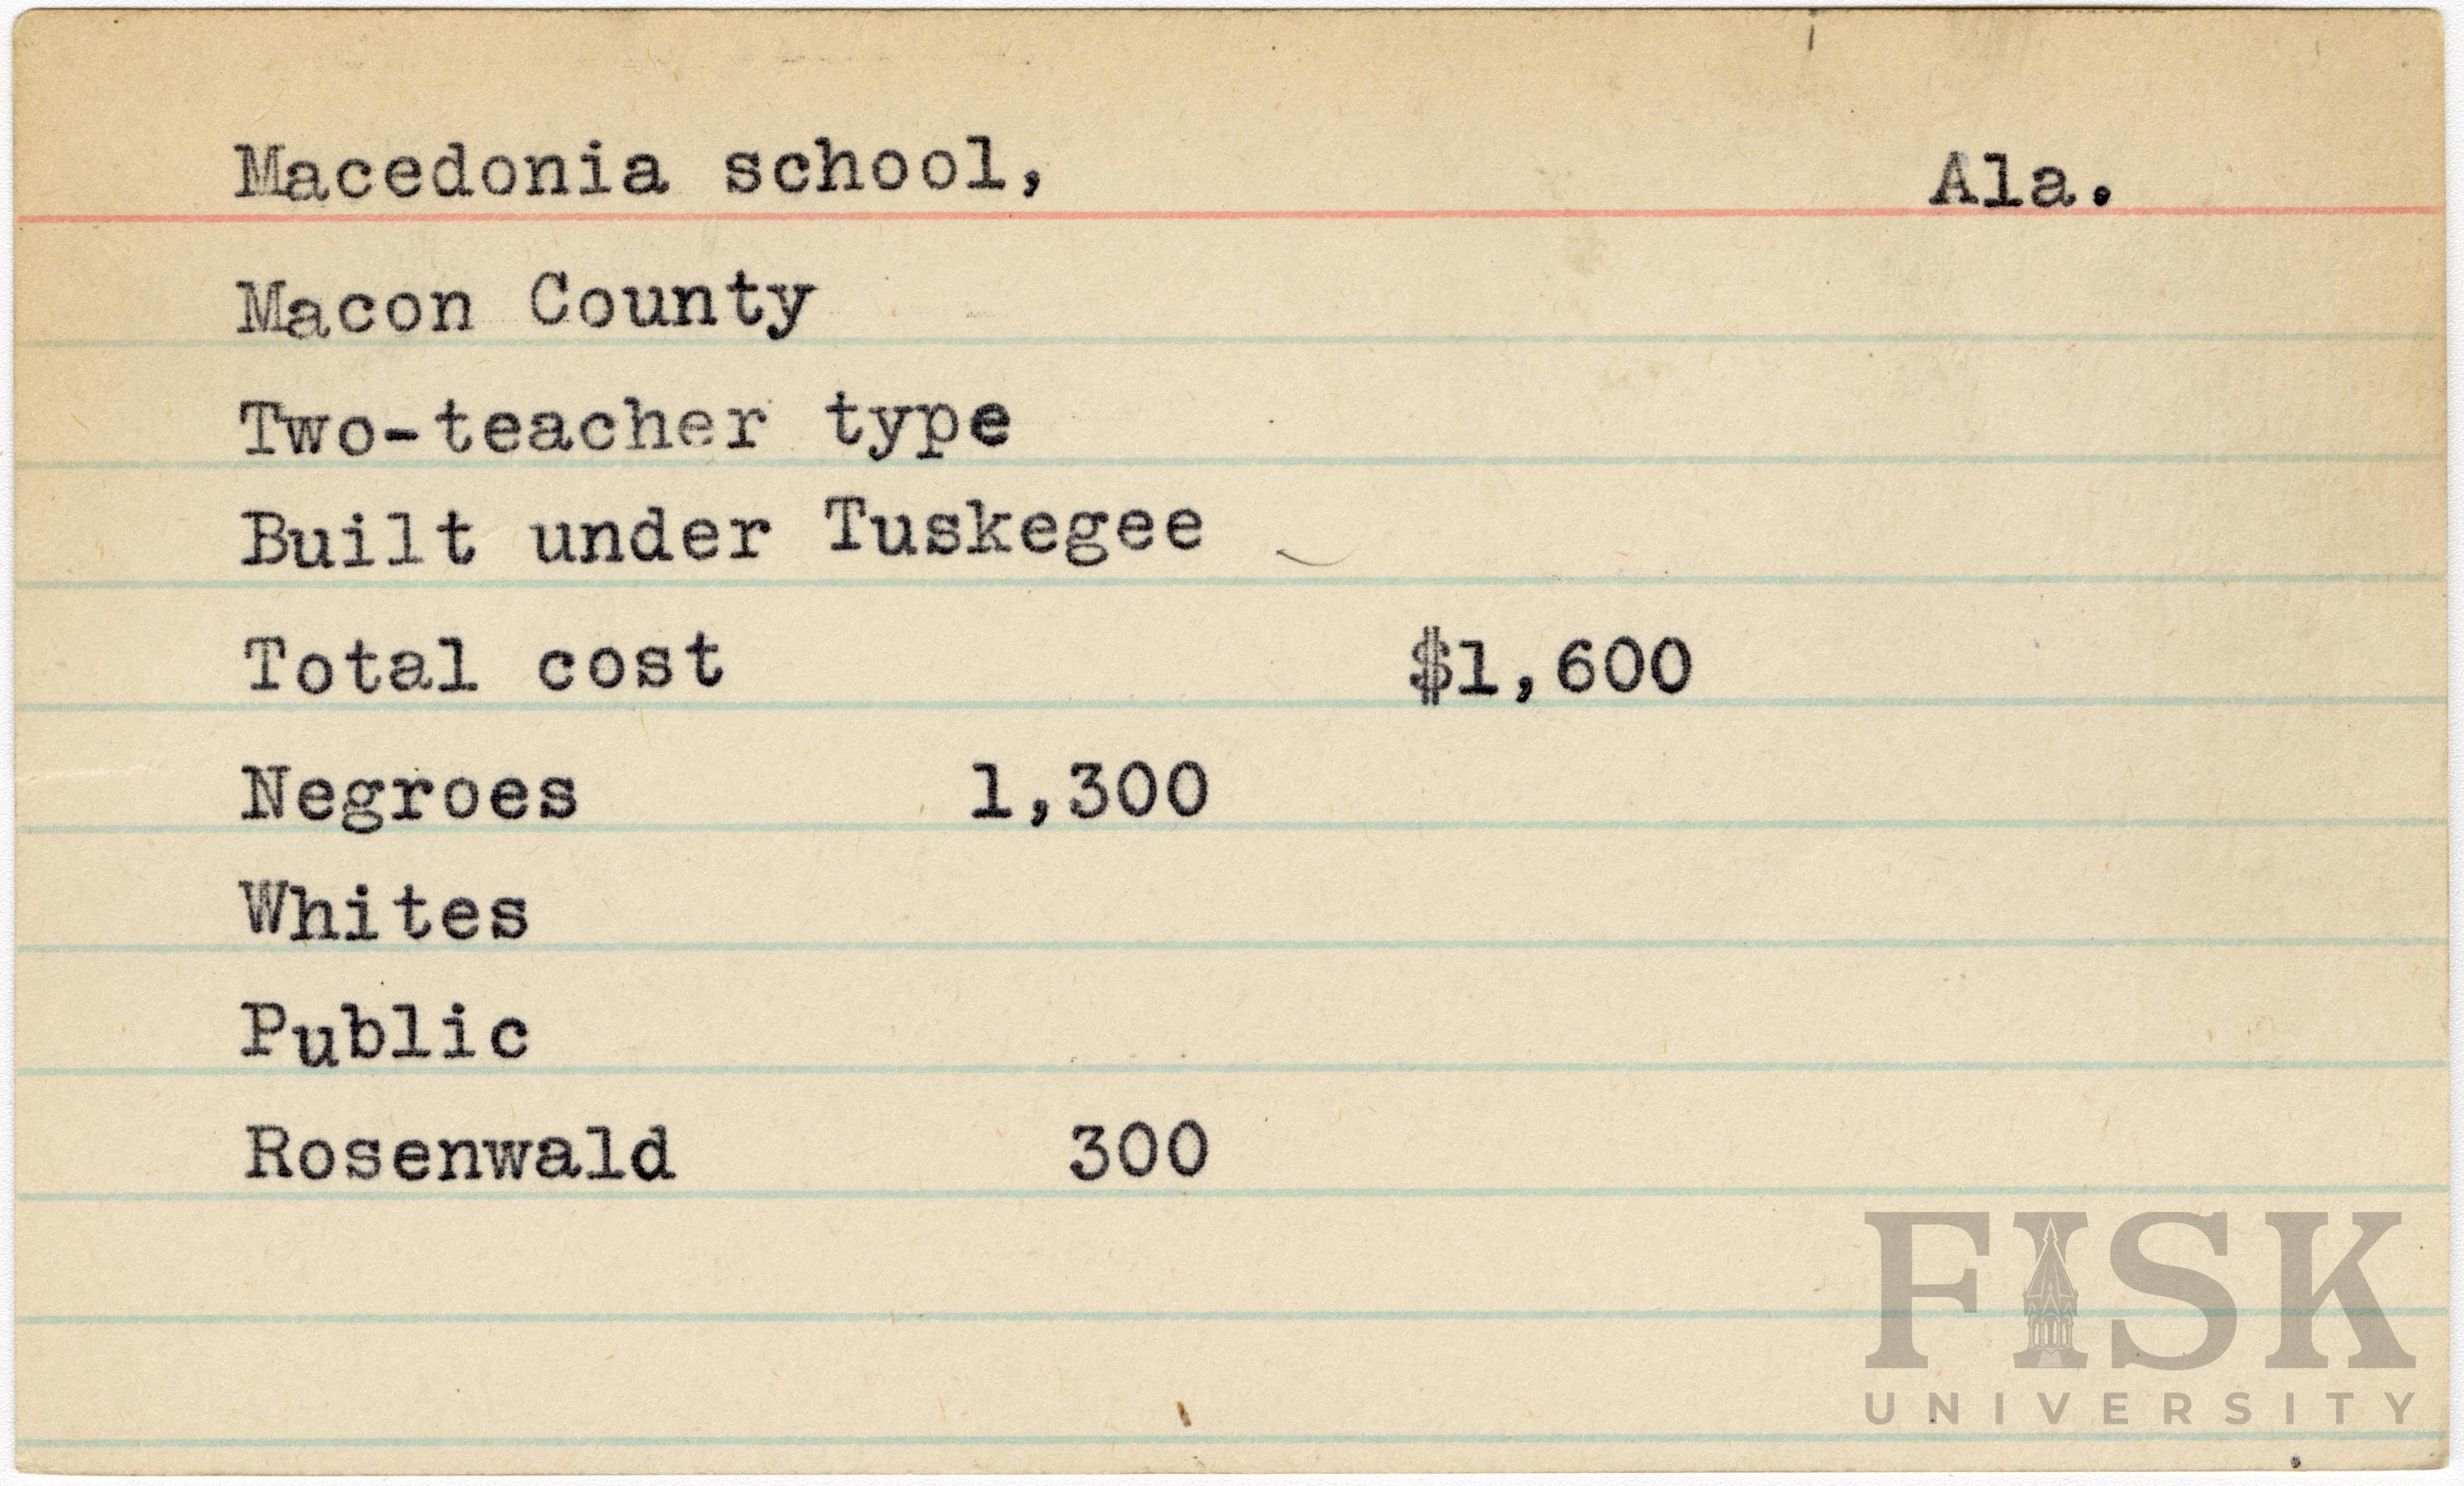 Macedonia school, Ala.
Macon County
Two-teacher type
Built under Tuskegee
Total cost $1,600
Negroes 1,300
Whites
Public
Rosenwald 300
FISK
UNIVERSITY